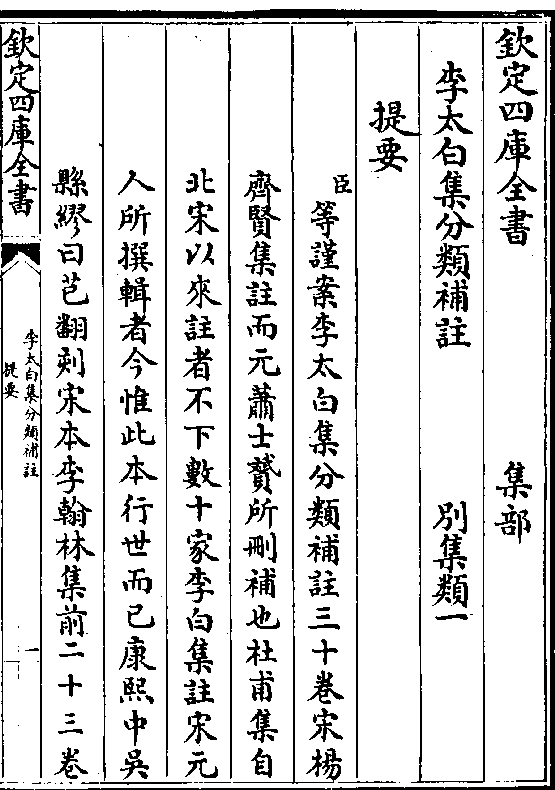 欽定四庫全書 集部
李太白集分類補註 別集類一
提要
臣等謹案李太白集分類補註三十卷宋楊
齊賢集註而元蕭士贇所刪補也杜甫集自
北宋以來註者不下數十家李白集註宋元
人所撰輯者今惟此本行世而已康熙中吳
縣繆曰芑翻刻宋本李翰林集前二十三卷
欽定四庫全書
李太白集分類補註
提要
一